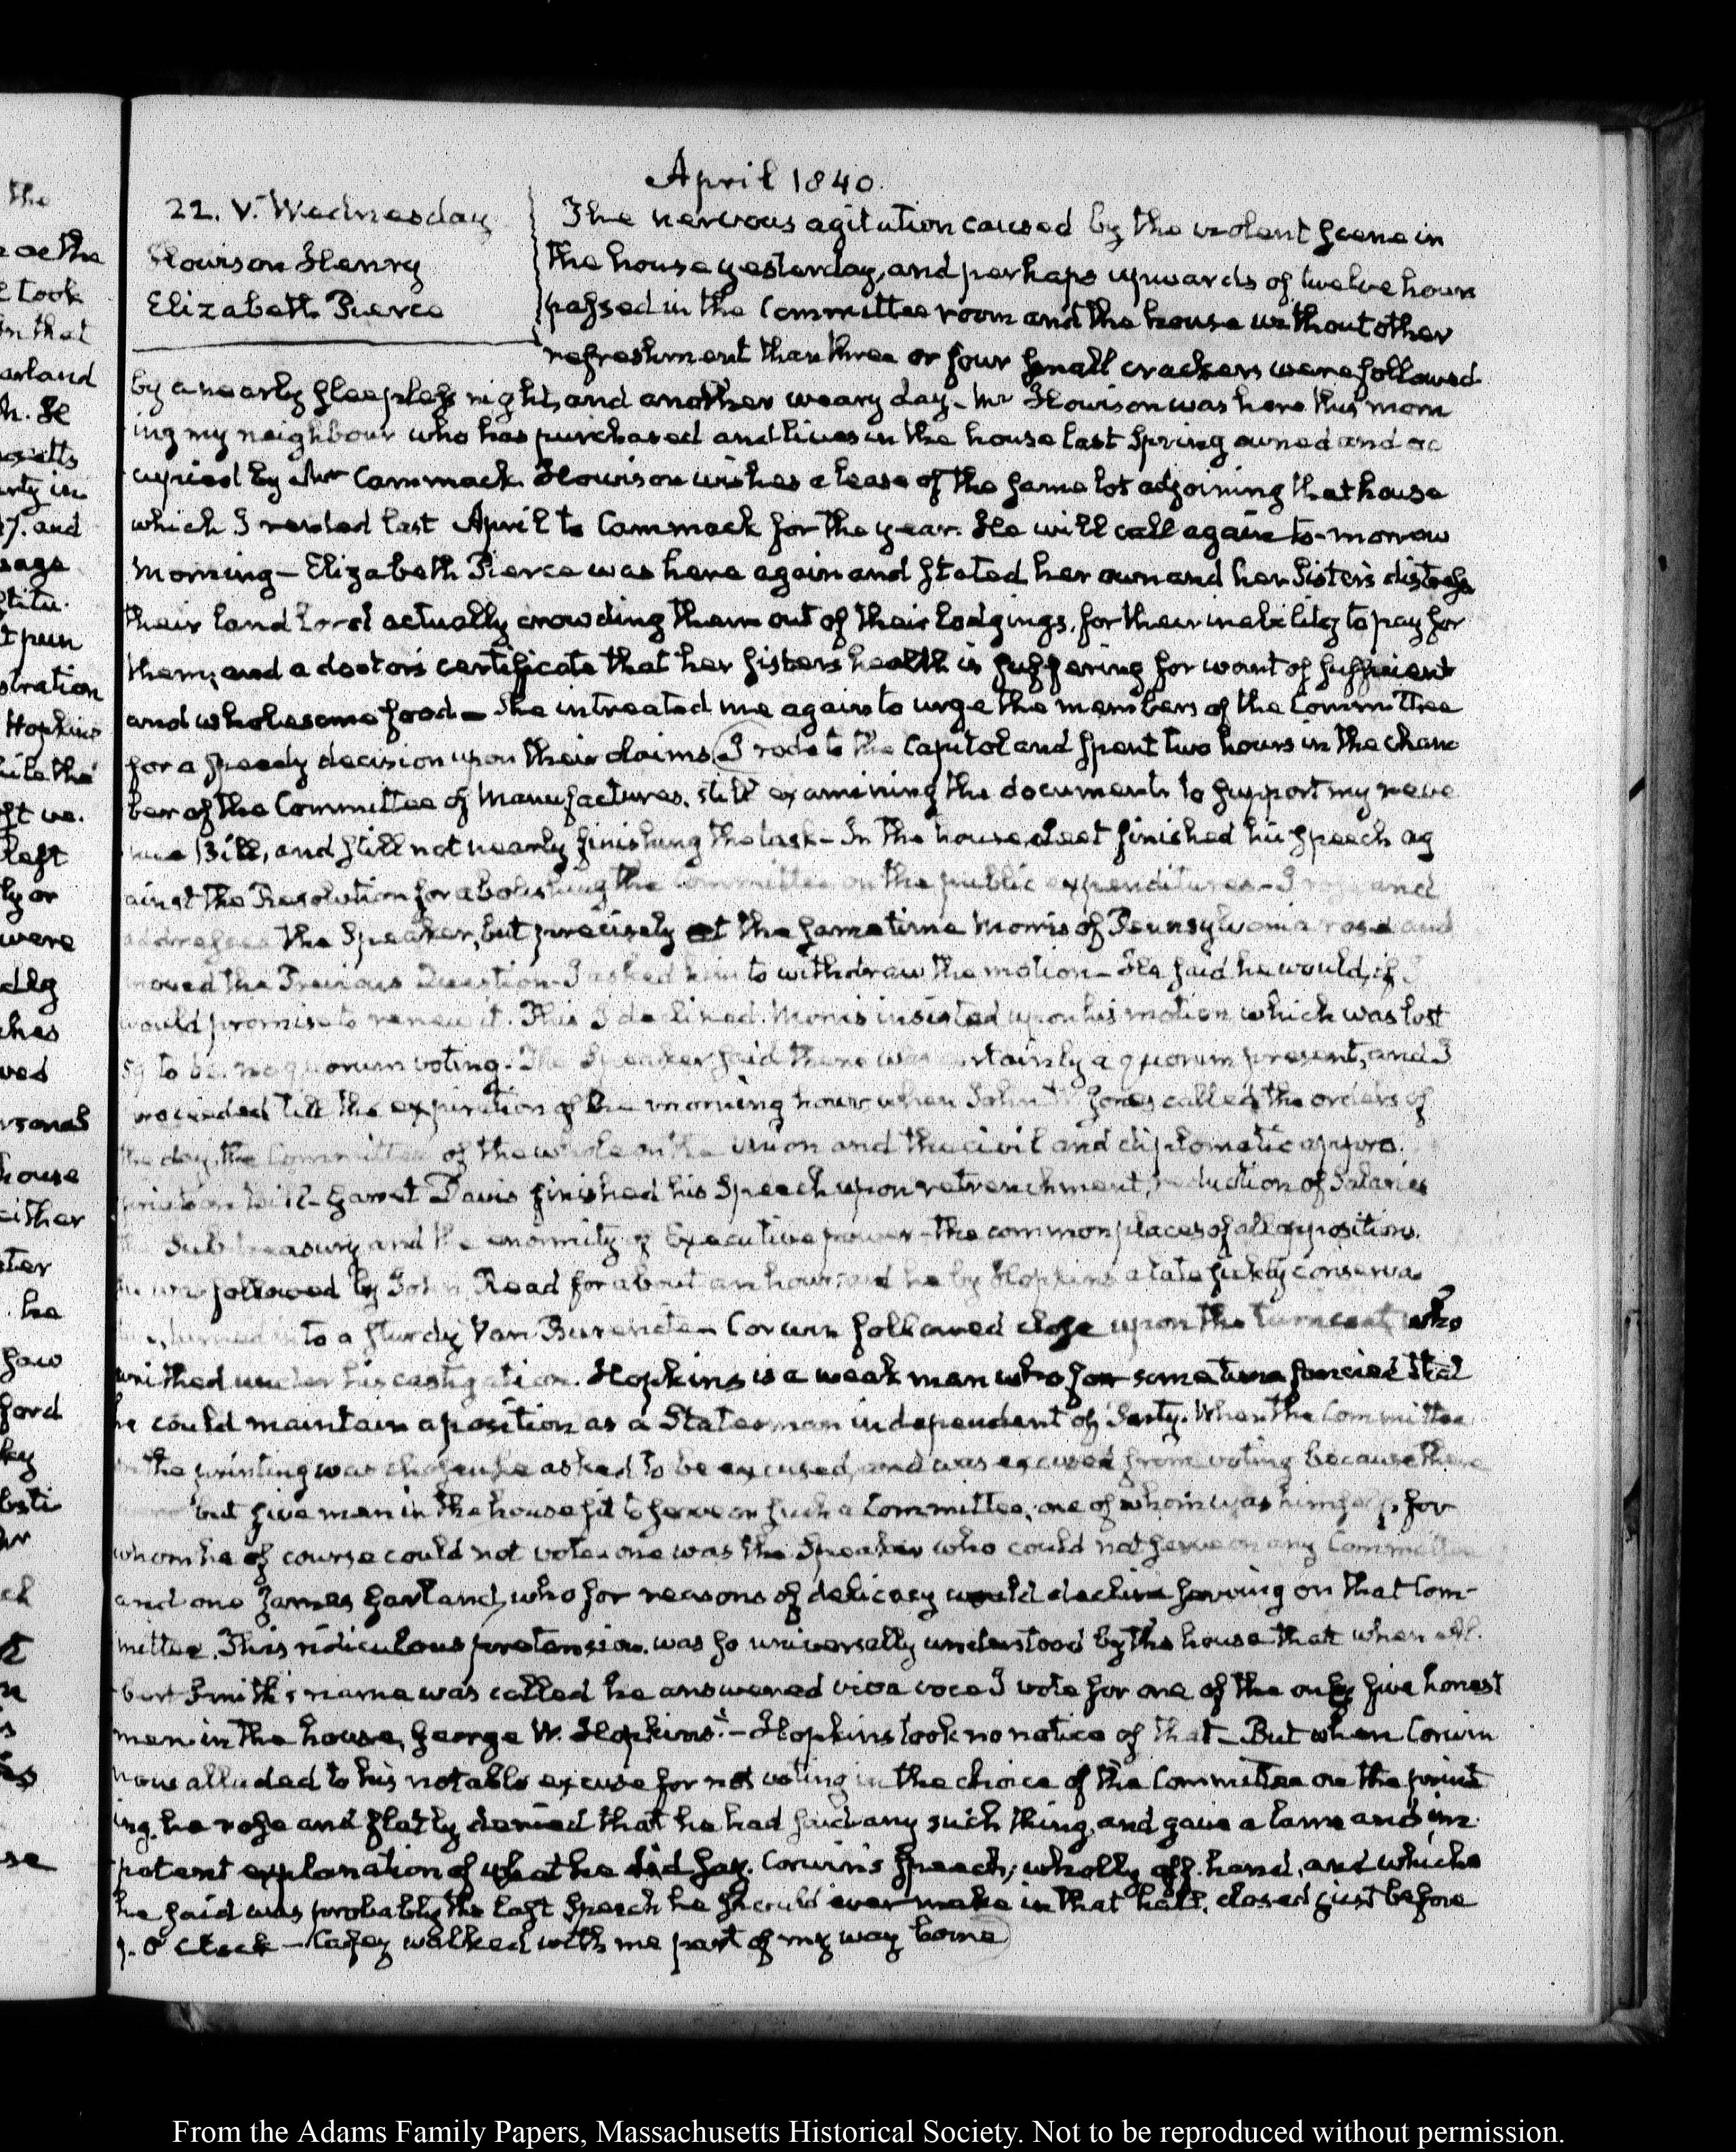 April 1840.
22. V. Wednesday
Howison Henry
Elizabeth Pierce
The nervous agitation caused by the violent scene in
the house yesterday, and perhaps upwards of twelve hours
passed in the Committee room and the house without other
refreshment than three or four small crackers were followed
by a nearly sleepless night, and another weary day. Mr Howison was here this morn
ing my neighbour who has purchased and lives in the house last Spring owned and oc
cupied by Mr Cammack. Howison wishes a lease of the same lot adjoining that house
which I rented last April to Cammack for the year. He will call again to-morrow
morning — Elizabeth Pierce was here again and stated her own and her Sister's distress
their land lord actually crowding them out of their lodgings, for their inability to pay for
them; and a doctor's certificate that her sisters health is suffering for want of sufficient
and wholesome food — She intreated me again to urge the members of the Committee
for a speedy decision upon their claims. I rode to the Capitol and spent two hours in the cham
ber of the Committee of Manufactures, still examining the documents to support my reve
nue Bill, and still not nearly finishing the task — In the house, finished his speech ag
ainst the Resolution for abolishing the Committee on the public expenditures — I rose and
addressed the Speaker, but precisely at the same time Morris of Pennsylvania rose and
moved the Previous Question. I asked him to withdraw the motion — He said he would, if I
would promise to renew it. This I declined. Morris insisted upon his motion, which was lost
59 to 62. no quorum voting. The Speaker said there was certainly a quorum present, and I
proceeded till the expiration of the morning hour when John W. Jones called the orders of
the day, the Committee of the whole on the Union and the civil and diplomatic appro.
priation bill — Garret Davis finished his Speech upon retrenchment, reduction of Salaries
the Sub treasury and the enormity of Executive power — the common places of all opposition.
He was followed by John Read for about an hour; and he by Hopkins a late conserva
turned into a sturdy Van Burenite — Corwin followed close upon the turncoat who
writhed under his castigation. Hopkins is a weak man who for some time fancied that
he could maintain a position as a Statesman independent of Party. When the Committee
on the printing was chosen he asked to be excused, and was excused from voting because there
were but five men in the house fit to serve on such a Committee; one of whom was himself, for
whom he of course could not vote. one was the Speaker who could not serve on any Committee
and one James Garland, who for reasons of delicacy would decline serving on that Com-
mittee. This ridiculous pretension was so universally understood by the house that when Al.
bert Smith's name was called he answered viva voce I vote for one of the only five honest
men in the house, George W. Hopkins. — Hopkins took no notice of that — But when Corwin
now alluded to his notable excuse for not voting in the choice of the Committee on the print
ing, he rose and flatly denied that he had said any such thing, and gave a lame and im
potent explanation of what he did say. Corwin's speech; wholly off. hand, and which
he said was probably the last Speech he should ever make in that hall, closed just before
7. O'Clock — Casey walked with me part of my way home
From the Adams Family Papers, Massachusetts Historical Society. Not to be reproduced without permission.